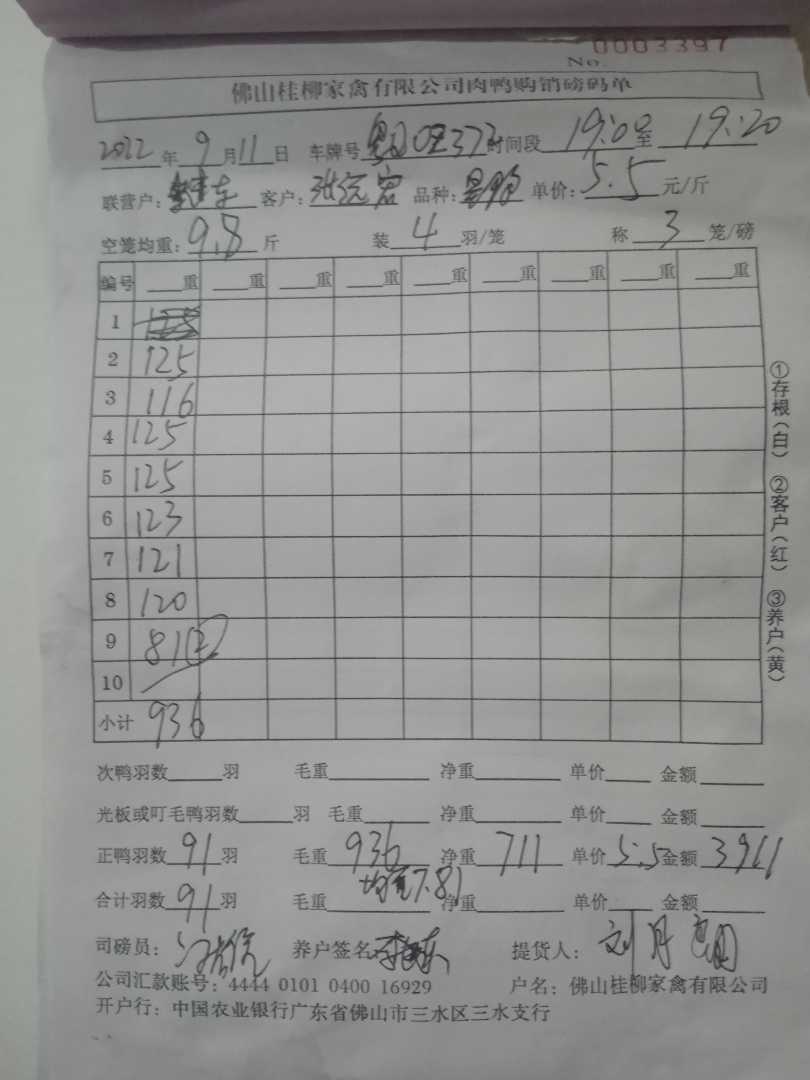 0003397
No.
佛山桂柳家禽有限公司肉鸭购销磅码单
2022年9月11日 车牌号 时间段19:00至19:20
联营户: 客户: 品种: 单价:5.5元/斤
空笼均重:9.8斤 装4羽/笼 称3笼/磅
编号 重 重 重 重 重 重 重 重 重
1
2 125
3 116
4 125
5 125
6 123
7 121
8 120
9 81②
10
小计 936
次鸭羽数 羽 毛重 净重 单价 金额
光板或叮毛鸭羽数 羽 毛重 净重 单价 金额
正鸭羽数91羽 毛重936 净重711 单价5.5金额3911
均重7.81
合计羽数91羽 毛重 净重 单价 金额
司磅员: 养户签名 提货人:刘月
公司汇款账号:4444 0101 0400 16929 户名:佛山桂柳家禽有限公司
开户行:中国农业银行广东省佛山市三水区三水支行
①存根(白) ②客户(红) ③养户(黄)